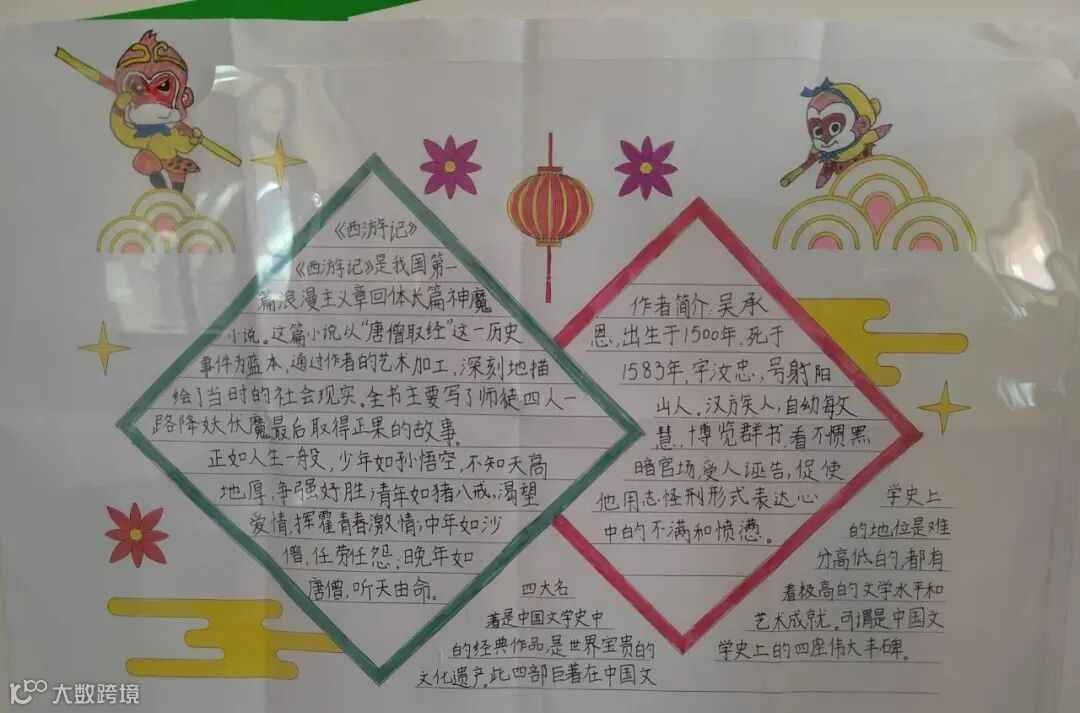 《西游记》
《西游记》是我国第一
篇浪漫主义章回体长篇神魔
小说。这篇小说以“唐僧取经”这一历史
事件为蓝本,通过作者的艺术加工,深刻地描
绘了当时的社会现实。全书主要写了师徒四人一
路降妖伏魔最后取得正果的故事。
正如人生一般,少年如孙悟空,不知天高
地厚,争强好胜;青年如猪八戒,渴望
爱情,挥霍青春激情;中年如沙
僧,任劳任怨;晚年如
唐僧,听天由命。
作者简介:吴承
恩,出生于1500年,死于
1583年,字汝忠,号射阳
山人。汉族人,自幼敏
慧,博览群书,看不惯黑
暗官场,受人诬告,促使
他用志怪刑形式表达心
中的不满和愤懑。
四大名
著是中国文学史中
的经典作品,是世界宝贵的
文化遗产。此四部巨著在中国文
学史上
的地位是难
分高低的,都有
着极高的文学水平和
艺术成就。可谓是中国文
学史上的四座伟大丰碑。
大数跨境